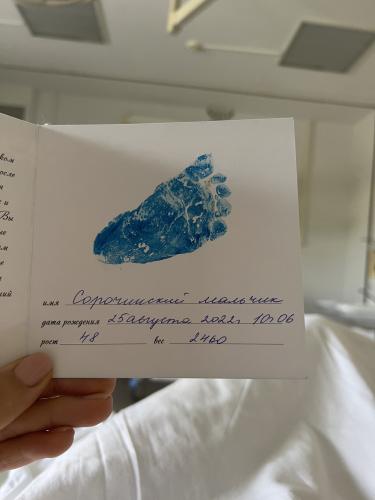 ком
после
и
Вы
ые
им
ие
ший
имя Сорочинский мальчик
дата рождения 25 августа 2022г 10:06
рост 48 вес 2460